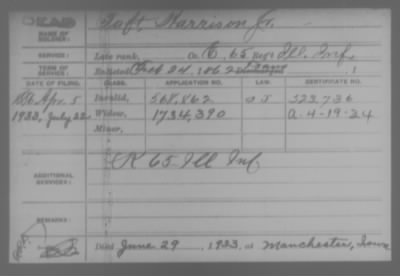 DEAD Taft, Harrison Jr.
NAME OF SOLDIER:
SERVICE: Late rank, Co. E, 65 Reg't Ill. Inf.
TERM OF SERVICE: Enlisted Feb 24, 1862
DATE OF FILING. CLASS. APPLICATION NO. LAW. CERTIFICATE NO.
Apr. 5 Invalid, 568,862 323,736
1933, July 22 Widow, 1734,390 a-4-19-34
Minor,
K 65 Ill Inf
ADDITIONAL SERVICES:
REMARKS:
Died June 29, 1933, at Manchester, Iowa